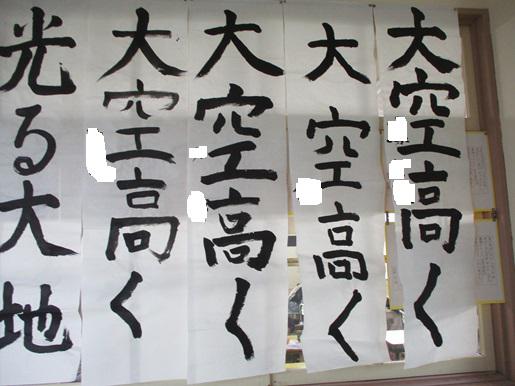 大空高く
大空高く
大空高く
大空高く
光る大地